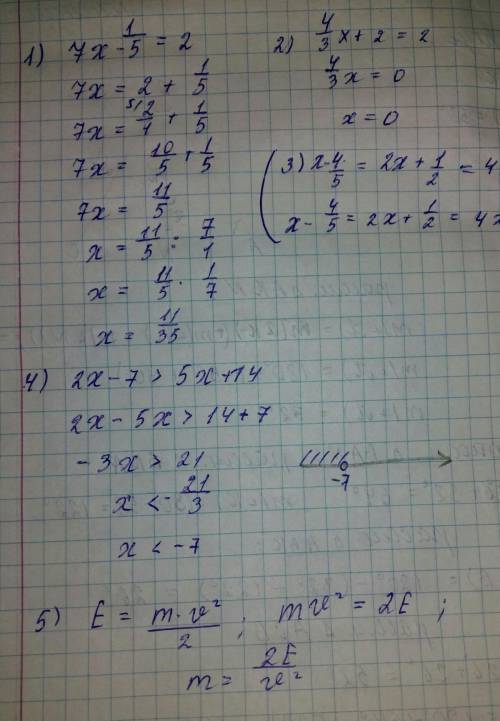 1) 7x - 1/5 = 2
7x = 2 + 1/5
7x = 5\ 2/1 + 1/5
7x = 10/5 + 1/5
7x = 11/5
x = 11/5 : 7/1
x = 11/5 · 1/7
x = 11/35
2) 4/3 x + 2 = 2
4/3 x = 0
x = 0
3) x - 4/5 = 2x + 1/2 = 4
x - 4/5 = 2x + 1/2 = 4x
4) 2x - 7 > 5x + 14
2x - 5x > 14 + 7
-3x > 21
x < - 21/3
x < -7
-7
5) E = m·v²/2 ; mv² = 2E ;
m = 2E/v²